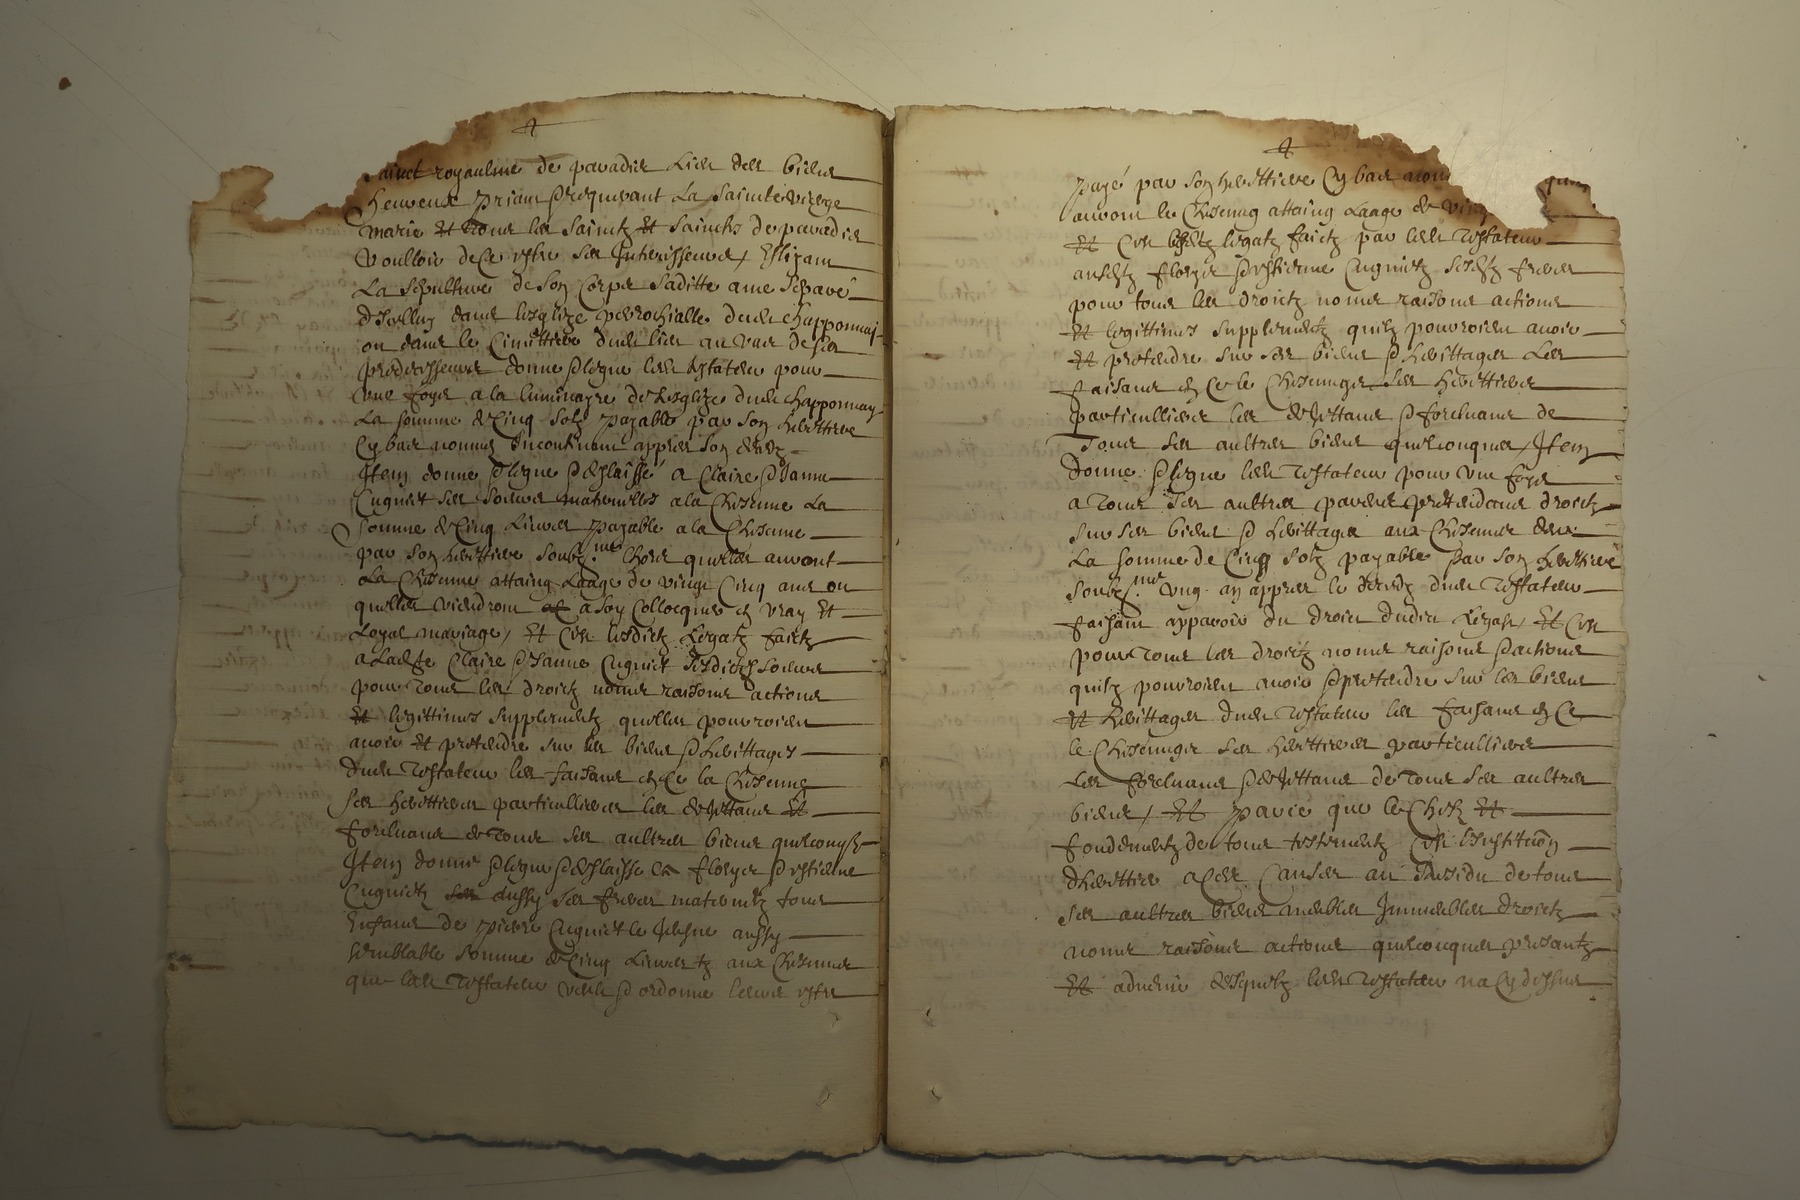 sainct royaulme de paradis lieu des bien
heureux priant & requerant la saincte vierge
marie et tous les sainctz et sainctes de paradis
voulloir de ce estre ses intercesseurs / eslizant
la sepulture de son corps saditte ame separé
d'icelluy dans lesglize parrochialle dudict chapponnay
ou dans le cimittiere dudict lieu au vas de ses
predecesseurs donne & legue ledict testateur pour
une foys a la luminayre de lesglize dudict chapponnay
la somme de cinq solz payable par son herittiere
cy bas nommee incontinant appres son decedz
Item donne & legue & deslaisse a Claire & Janne
Cugniet ses soeurs maternelles a la chescune la
somme de cinq livres payable a la chescune
par son herittiere soubz.nee lhors quelles auront
la chescune attaing laage de vingt cinq ans ou
quelles viendront a soy collocquer en vray et
loyal mariage / et cest lesdictz legatz faictz
a ladicte Claire & Janne Cugniet sesdictes soeurs
pour tous les droictz noms raisons actions
et legittimes supplementz quelles pourroient
avoir et pretendre sur les biens & herittages
dudict testateur les faisant en ce la chescune
ses herittieres particullieres les dejettant et
forcluant de tous ses aultres biens quelconques
Item donne & legue & deslaisse a Floryse & Estienne
Cugnietz aussy ses freres maternelz tous
enfans de Pierre Cugniet le jeusne aussy
semblable somme de cinq livres tz aux chescuns
que ledict testateur veult & ordonne leurs estre
payé par son herittiere cy bas nom
auront le chescung attaing laage de ving
et cest lesdictz legatz faictz par ledict testateur
ausdictz Floryse & Estienne Cugnietz sesdictz freres
pour tous les droictz noms raisons actions
et legittimes supplementz quilz pourroient avoir
et pretendre sur ses biens & herittages les
faisant en ce le chescung ses herittiers
particulliers les dejettant & forcluant de
tous ses aultres biens quelconques / Item
donne & legue ledict testateur pour une foys
a tous ses aultres parens pretendans droictz
sur ses biens & herittages aux chescuns deux
la somme de cinq solz payable par son herittiere
soubz.nee ung an appres le decedz dudict testateur
faisant apparoir du droict dudict legat / et cest
pour tous les droictz noms raisons & actions
quilz pourroient avoir & pretendre sur les biens
et herittages dudict testateur les faisant en ce
le chescung ses herittiers particulliers
les forcluant & dejettant de tous ses aultres
biens / et parce que le chefz et
fondementz de tous testementz est linstitution
dherittier a ces causes au residu de tous
ses aultres biens meubles immeubles droictz
noms raisons actions quelconques presantz
et advenir desquelz ledict testateur na cy dessus